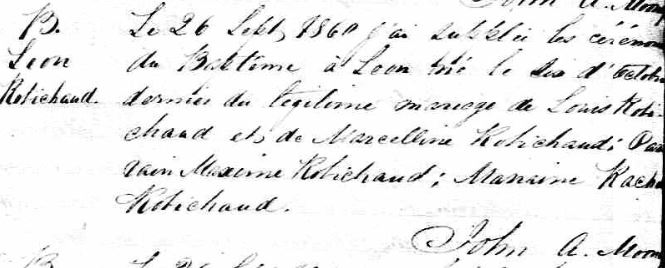 John A. Moon
B. Le 26 Sept 1860 j'ai supplée les cérémo
Leon du Baptême à Leon né le six d'Octobre
Robichaud. dernier du légitime mariage de Louis Robi-
chaud et de Marcelline Robichaud; Par
rain Maxime Robichaud; Marraine Rach
Robichaud.
John A. Moon
B. Le 26